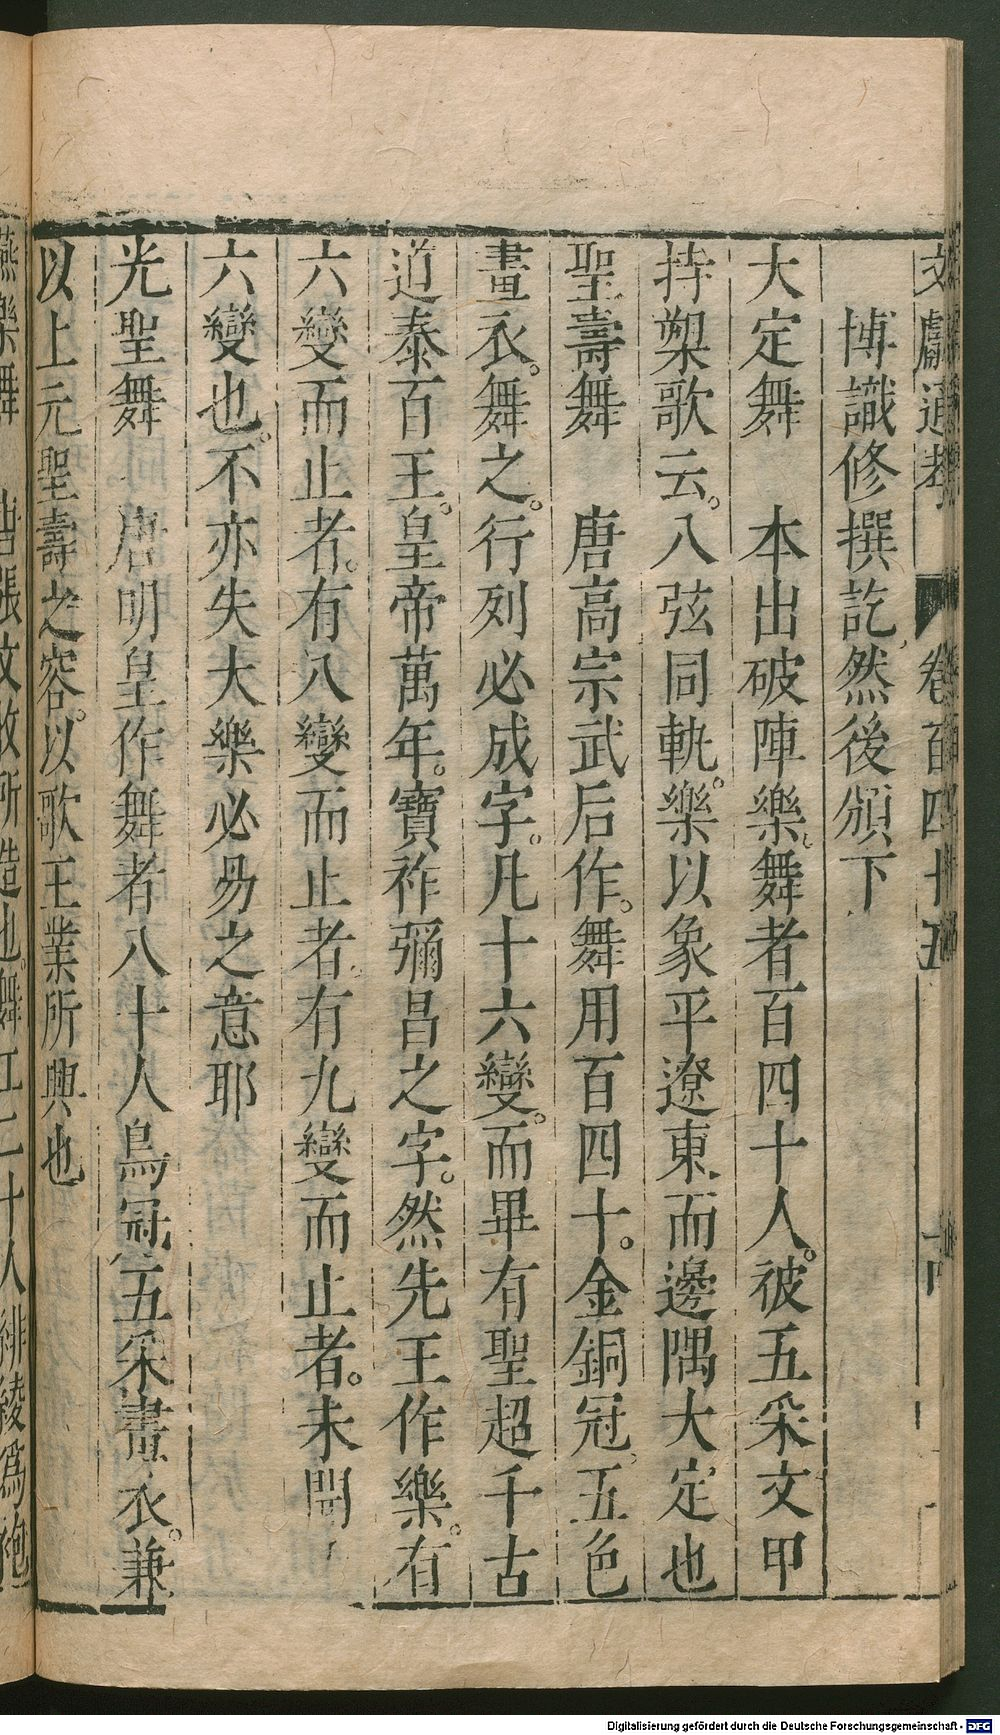 文獻通考 卷百四十五 十四
博識修撰訖然後頒下
大定舞 本出破陣樂舞者百四十人。被五采文甲
持槊歌云。八弦同軌。樂以象平遼東而邊隅大定也
聖壽舞 唐高宗武后作。舞用百四十。金銅冠。五色
畫衣。舞之。行列必成字。凡十六變。而畢有聖超千古
道泰百王。皇帝萬年。寶祚彌昌之字。然先王作樂。有
六變而止者。有八變而止者。有九變而止者。未聞
六變也。不亦失大樂必易之意耶
光聖舞 唐明皇作舞者八十人鳥冠五采畫衣。兼
以上元聖壽之容。以歌王業所興也
燕樂舞 唐張文收所造也。舞工二十人緋綾爲袍
Digitalisierung gefördert durch die Deutsche Forschungsgemeinschaft - DFG